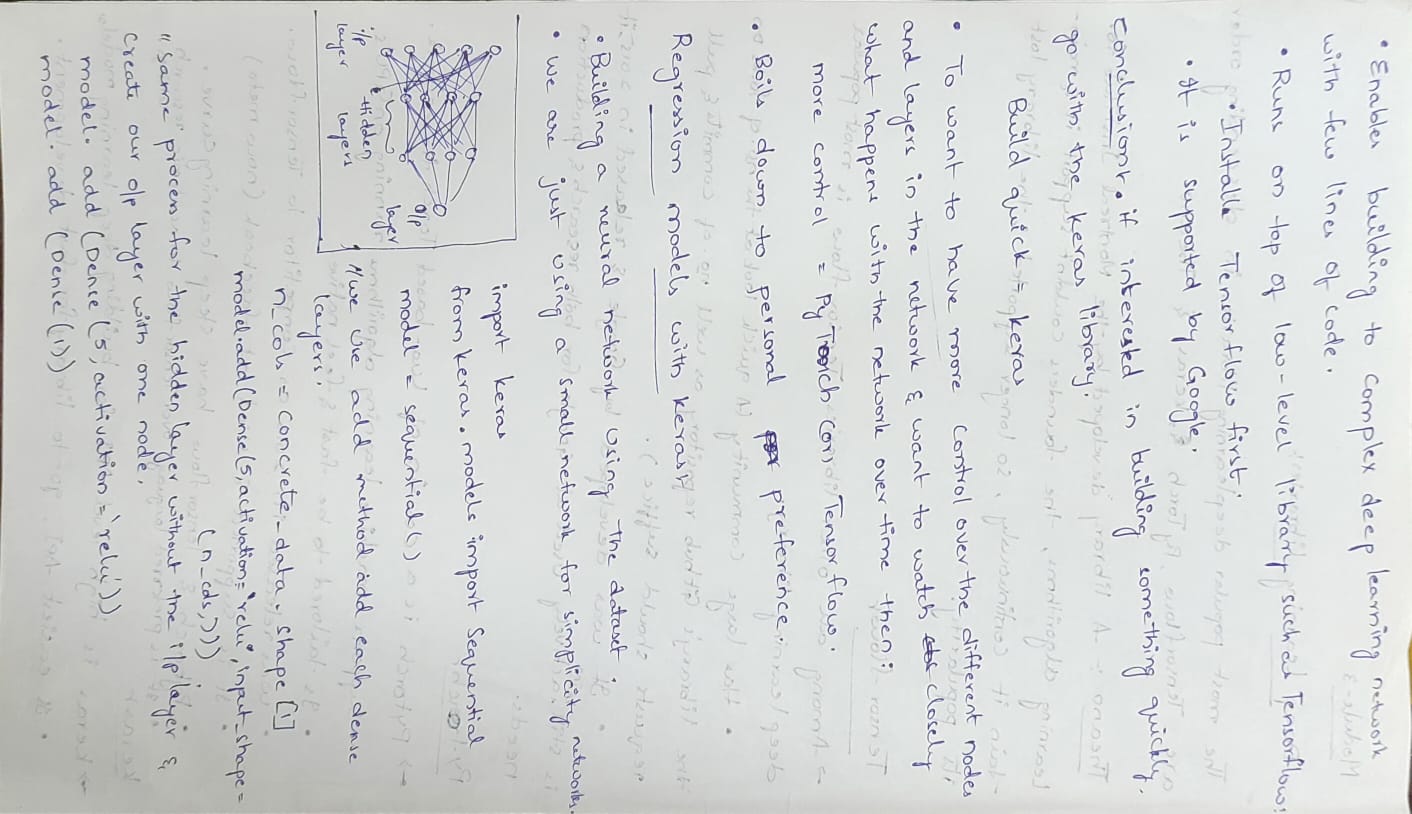 • Enables building to complex deep learning network
with few lines of code.
• Runs on top of low-level library such as Tensorflow:
• Installa Tensorflow first.
• It is supported by Google.
Conclusion:. if interested in building something quickly,
go with the keras library.
Build quick = keras
• To want to have more control over the different nodes
and layers in the network & want to watch closely
what happens with the network over time then:
more control = PyTorch (or) Tensorflow.
• Boils down to personal preference.
Regression models with keras:
• Building a neural network using the dataset.
• we are just using a small network for simplicity networks.
import keras
from keras.models import Sequential
model = sequential()
o/p
layer
i/p
layer
Hidden
layers
//we use add method add each dense
layers.
n_cols = concrete_data.shape[1]
model.add(Dense(5, activation='relu', input_shape=
(n_cols,)))
"Same process for the hidden layer without the i/p layer &
create our o/p layer with one node.
model.add(Dense(5, activation='relu'))
model.add(Dense(1))